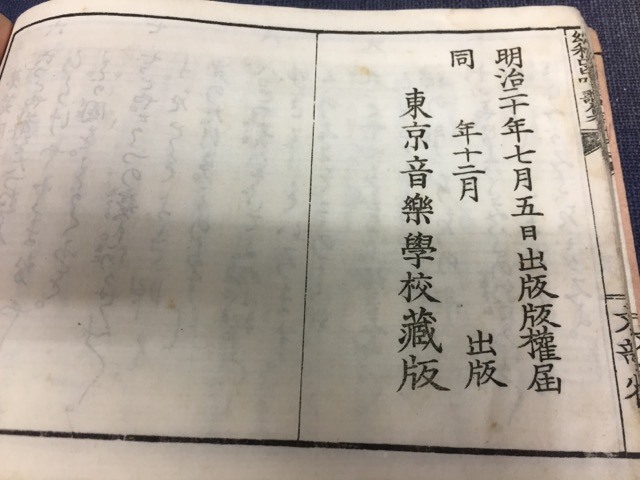 明治二十年七月五日出版版權届
同 年十二月 出版
東京音樂學校藏版
文部省